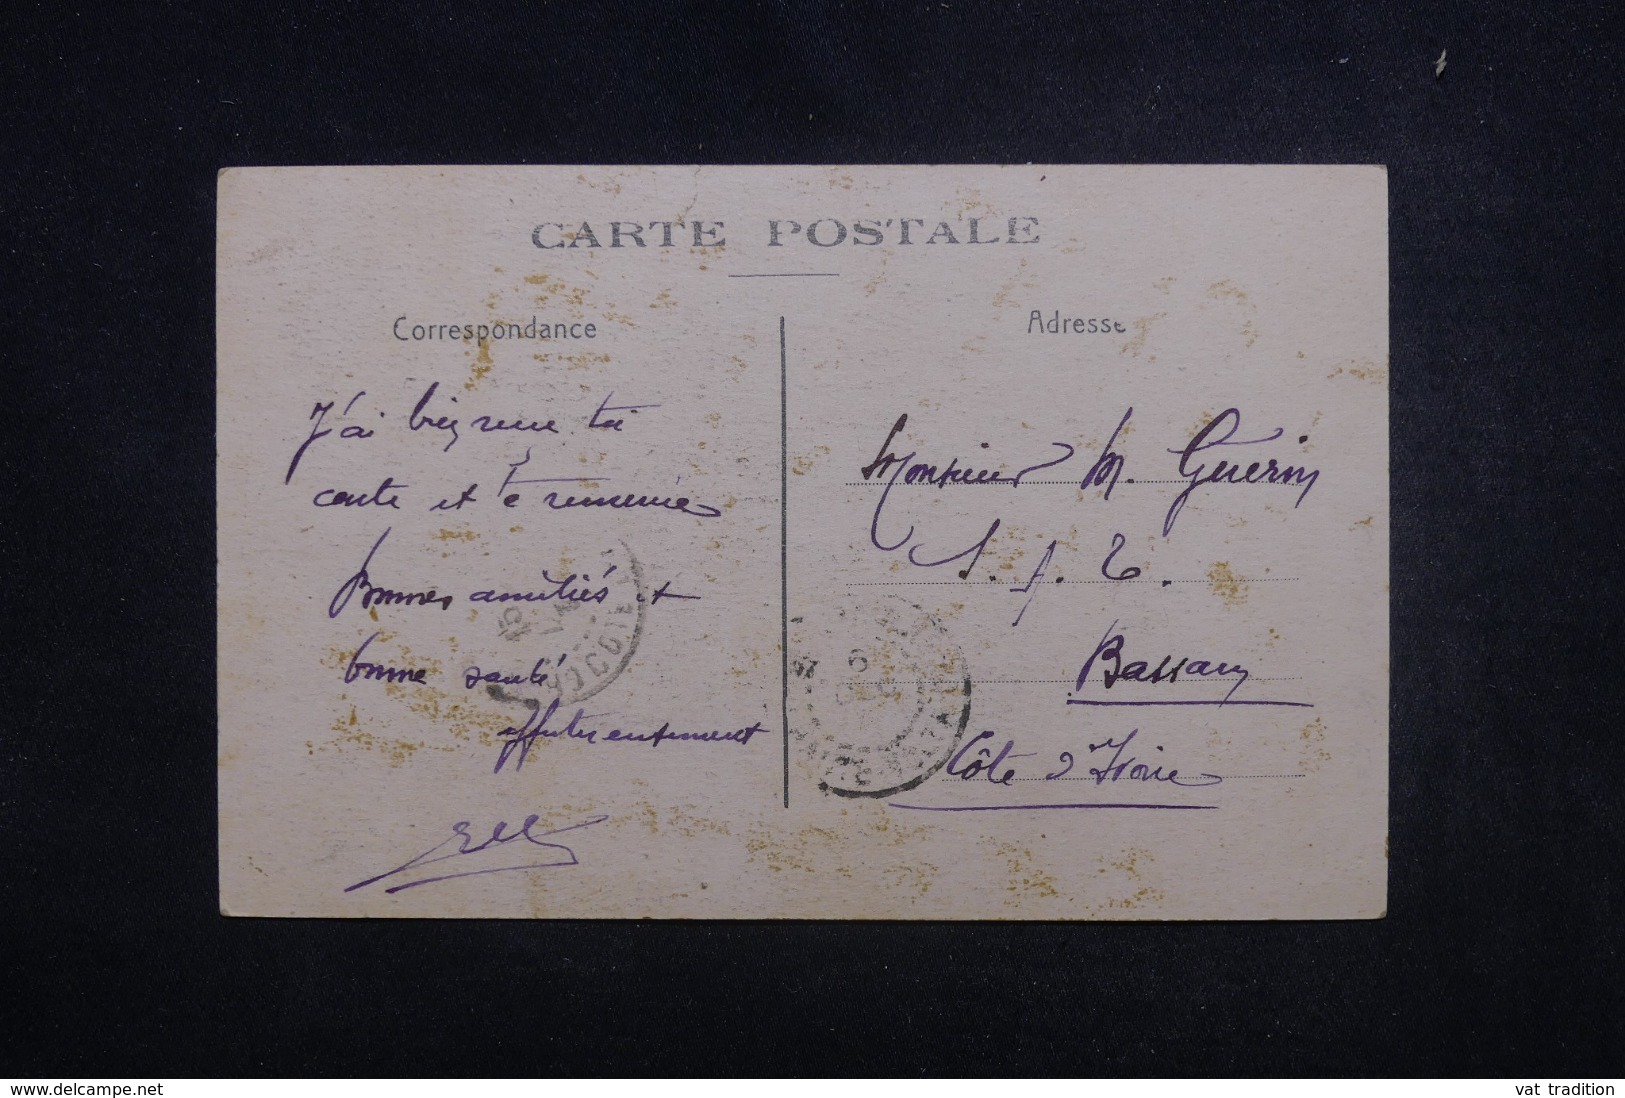 CARTE POSTALE
Correspondance
Adresse
J'ai bien reçu ta
carte et t'e remercie
Bonnes amitiés et
bonne santé
affectueusement
Monsieur M. Guerin
Bassam
Côte d'Ivoire
www.delcampe.net
vat tradition